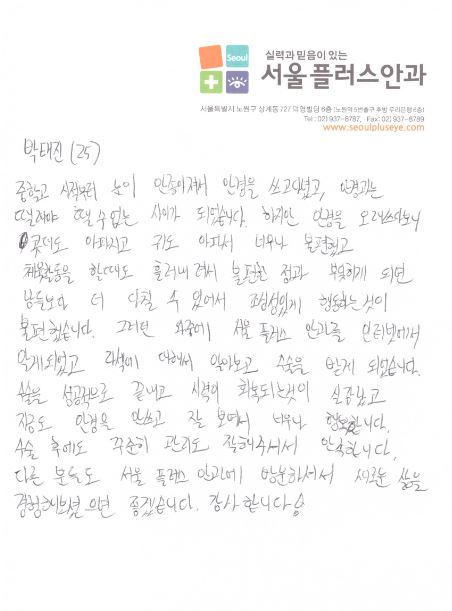 Seoul
실력과 믿음이 있는
서울플러스안과
서울특별시 노원구 상계동 727 덕영빌딩 6층 (노원역 5번출구 후방 우리은행 6층)
Tel : 02) 937-8787, Fax: 02) 937-8789
www.seoulpluseye.com
박태진 (25)
중학교 시절부터 눈이 안좋아져서 안경을 쓰고다녔고, 안경과는
뗄래야 뗄 수 없는 사이가 되었습니다. 하지만 안경을 오래쓰다보니
콧대도 아파지고 귀도 아파서 너무나 불편했고
체육활동을 할때도 흘러내려서 불편한 점과 부딪히게 되면
남들보다 더 다칠 수 있어서 조심성있게 행동하는것이
불편했습니다. 그러던 와중에 서울 플러스 안과를 인터넷에서
알게되었고 라섹에 대해서 알아보고 수술을 받게 되었습니다.
수술을 성공적으로 끝내고 시력이 회복되는것이 실감났고
지금도 안경을 안쓰고 잘 보여서 너무나 행복합니다.
수술 후에도 꾸준히 관리도 잘해주셔서 만족합니다,
다른 분들도 서울 플러스 안과에 방문하셔서 새로운 삶을
경험해보셨으면 좋겠습니다. 감사합니다